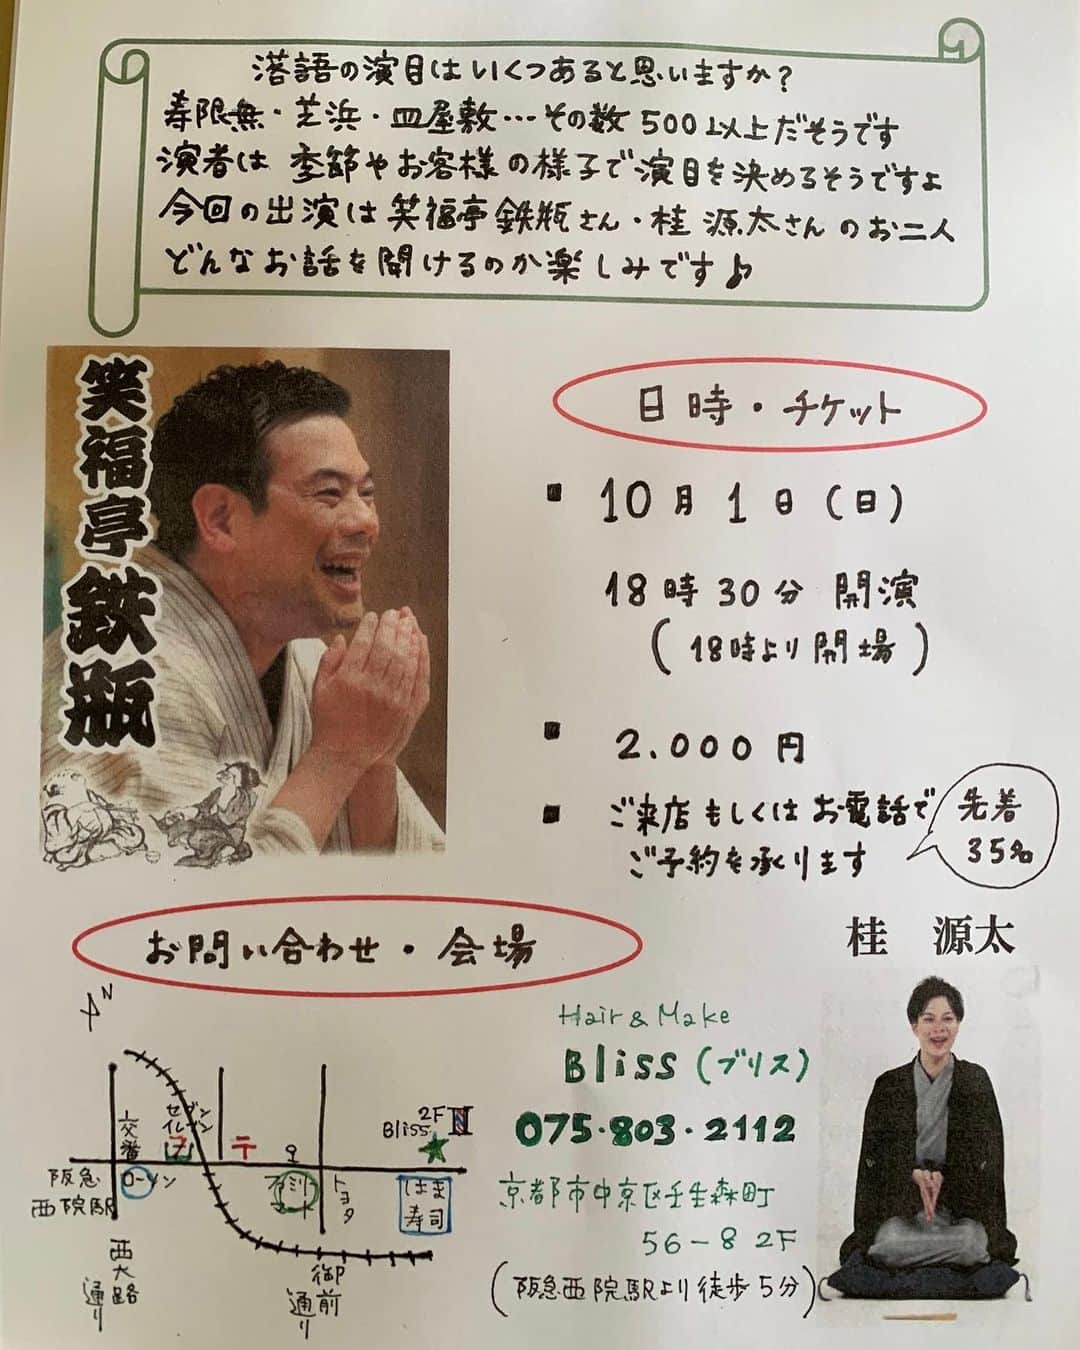 落語の演目はいくつあると思いますか?
寿限無・芝浜・皿屋敷…その数500以上だそうです
演者は季節やお客様の様子で演目を決めるそうですよ
今回の出演は笑福亭鉄瓶さん・桂 源太さんのお二人
どんなお話を聞けるのか楽しみです♪
笑福亭鉄瓶
日時・チケット
10月1日(日)
18時30分 開演
(18時より開場)
2.000円
ご来店もしくはお電話で
ご予約を承ります
先着
35名
お問い合わせ・会場
桂 源太
Hair & Make
Bliss(ブリス)
075・803・2112
京都市中京区壬生森町
56-8 2F
(阪急西院駅より徒歩5分)
N
交番
セブン
イレブン
7
〒
2F
Bliss
阪急
西院駅
ローソン
ファミリーマート
トヨタ
はま
寿司
西大路
通り
御前
通り